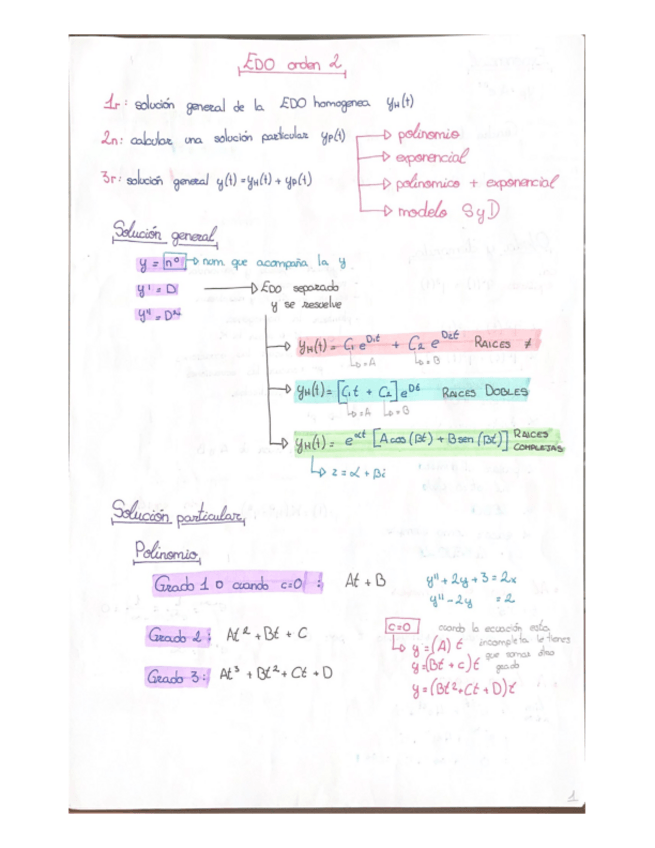 EDO orden 2
1r: solución general de la EDO homogenea yH(t)
2n: calcular una solución particular yp(t)
→ polinomio
→ exponencial
→ polinomico + exponencial
→ modelo SyD
3r: solución general y(t) = yH(t) + yp(t)
Solución general
y = nº → num que acompaña la y
y' = D → EDO separado y se resuelve
y'' = D²
yH(t) = C₁ e^D₁t + C₂ e^D₂t RAICES ≠
↳=A ↳=B
yH(t) = [C₁t + C₂] e^Dt RAICES DOBLES
↳=A ↳=B
yH(t) = e^αt [A cos (βt) + B sen (βt)] RAICES COMPLEJAS
↳ z = α + βi
Solución particular
Polinomio
Grado 1 o cuando c=0 : At + B
y'' + 2y + 3 = 2x
y'' - 2y = 2
Grado 2: At² + Bt + C
Grado 3: At³ + Bt² + Ct + D
c=0 cuando la ecuación esta incompleta le tienes que sumar otro grado
↳ y = (A) t
y = (Bt + c) t
y = (Bt² + Ct + D) t
1